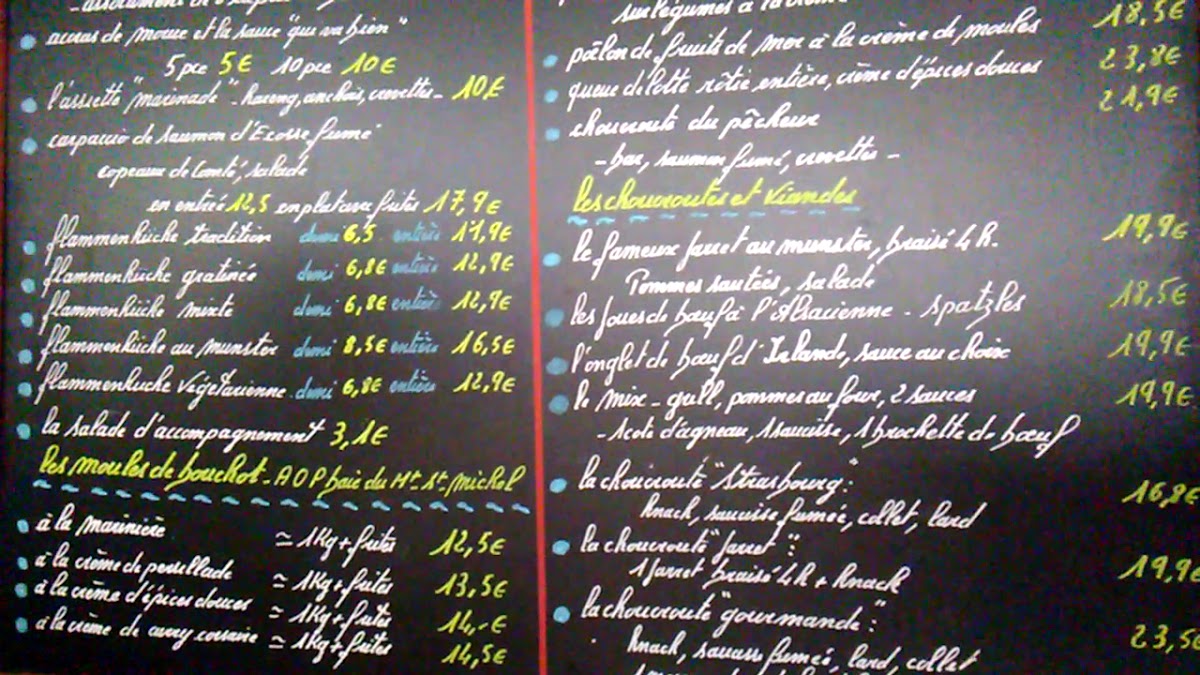 accras de morue et la sauce "qui va bien"
5 pce 5€ 10 pce 10€
l'assiette "marinade" - hareng, anchois, crevettes - 10€
carpaccio de saumon d'Ecosse fumé
copeaux de Comté, salade
en entrée 12,5 en plat avec frites 17,9€
flammenküche tradition demi 6,5 entière 11,9€
flammenküche gratinée demi 6,8€ entière 12,9€
flammenküche mixte demi 6,8€ entière 12,9€
flammenküche au munster demi 8,5€ entière 16,5€
flammenkuche végétarienne demi 6,8€ entière 12,9€
la salade d'accompagnement 3,1€
les moules de bouchot - AOP baie du Mt St Michel
à la marinière ≃ 1Kg + frites 12,5€
à la crème de persillade ≃ 1Kg + frites 13,5€
à la crème d'épices douces ≃ 1Kg + frites 14,-€
à la crème de curry ≃ 1Kg + frites 14,5€
sur légumes à la crème 18,5€
poêlon de fruits de mer à la crème de moules 23,8€
queue de lotte rôtie entière, crème d'épices douces 21,9€
choucroute du pêcheur
- bar, saumon fumé, crevettes -
les choucroutes et viandes
le fameux jarret au munster, braisé 4h. 19,9€
Pommes sautées, salade
les joues de bœuf à l'Alsacienne - spatzles 18,5€
l'onglet de bœuf d'Irlande, sauce au choix 19,9€
le mix - grill, pommes au four, 2 sauces 19,9€
- 1 cote d'agneau, 1 saucisse, 1 brochette de bœuf
la choucroute "Strasbourg": 16,8€
Knack, saucisse fumée, collet, lard
la choucroute "jarret": 19,9€
1 jarret braisé 4h + knack
la choucroute "gourmande": 23,5€
knack, saucisse fumée, lard, collet